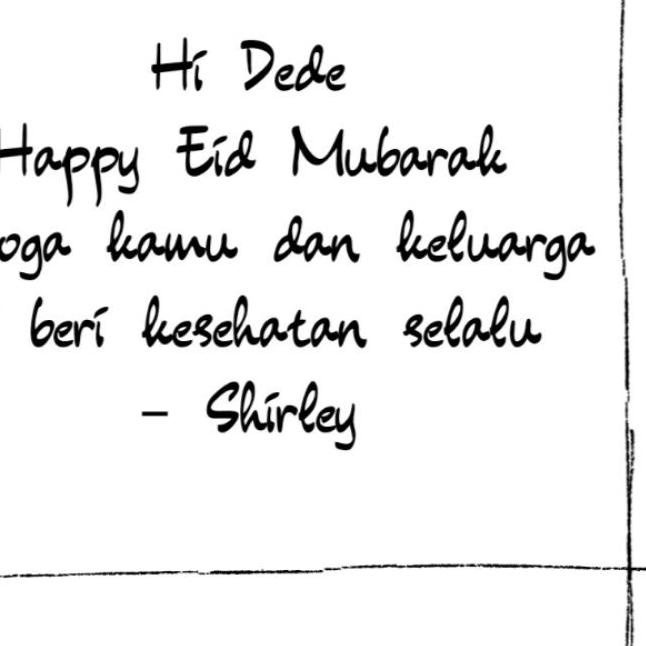 Hi Dede
Happy Eid Mubarak
oga kamu dan keluarga
beri kesehatan selalu
- Shirley